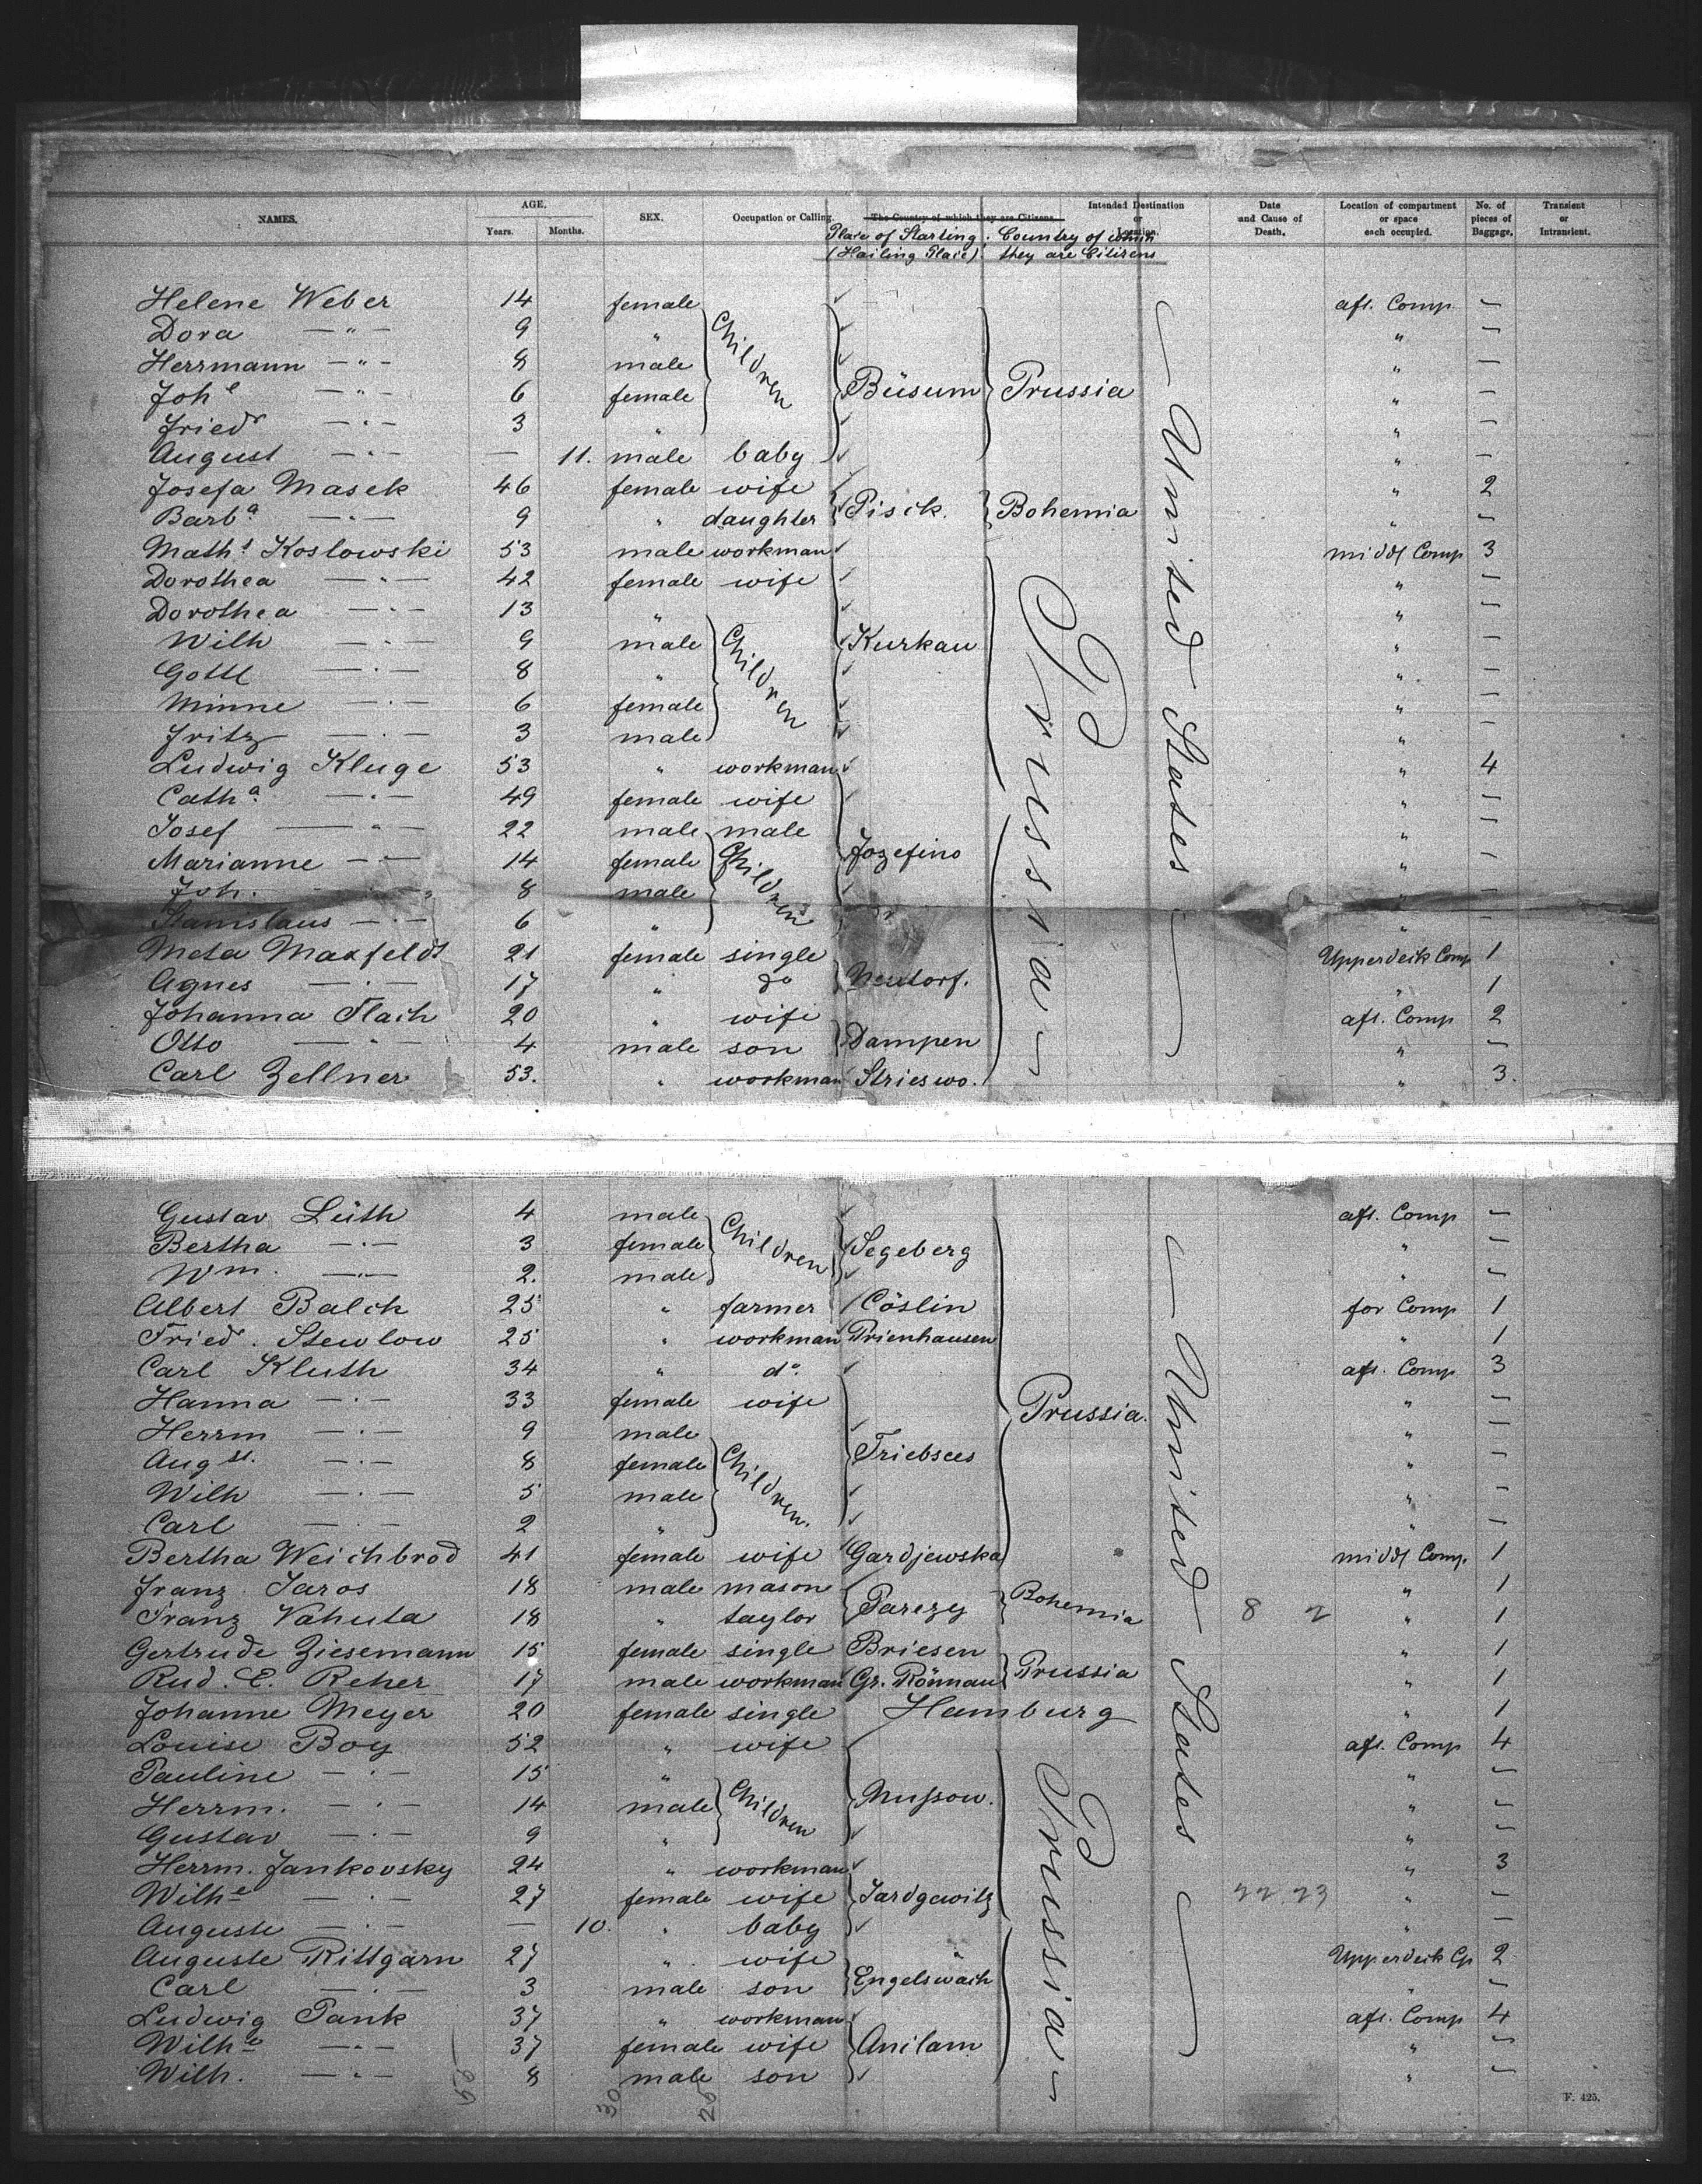 NAMES. AGE. Years. Months. SEX. Occupation or Calling. The Country of which they are Citizens. Intended Destination or Location. Date and Cause of Death. Location of compartment or space each occupied. No. of pieces of Baggage. Transient or Intransient.
Place of Starting; Country of which
(Hailing Place). they are Citizens
Helene Weber 14 female aft. Comp —
Dora —"— 9 " Children " —
Herrmann —"— 8 male " —
Joh.e —"— 6 female Büsum Prussia " —
Friedr —"— 3 " " —
August —"— — 11. male baby " —
Josefa Masek 46 female wife " 2
Barb.a —"— 9 " daughter Pisek. Bohemia " —
Math.s Koslowski 53 male workman middl Comp 3
Dorothea —"— 42 female wife " —
Dorothea —"— 13 " " —
Wilh —"— 9 male Children Kurkau " —
Gottl —"— 8 " " —
Minne —"— 6 female " —
Fritz —"— 3 male " —
Ludwig Kluge 53 " workman " 4
Cath.a —"— 49 female wife " —
Josef —"— 22 male male " —
Marianne —"— 14 female Children Jozefino " —
Joh. —"— 8 male " —
Stanislaus —"— 6 " " —
Meta Maxfeldt 21 female single Upperdeck Comp 1
Agnes —"— 17 " do Neutorf. " 1
Johanna Flach 20 " wife aft. Comp 2
Otto —"— 4 male son Dampen " —
Carl Zellner 53. " workman Strieswo. " 3.
Prussia
— United States —
Gustav Lüth 4 male aft. Comp —
Bertha —"— 3 female Children Segeberg " —
Wm. —"— 2. male " —
Albert Balch 25 " farmer Cöslin for Comp 1
Fried. Stewlow 25 " workman Prienhausen " 1
Carl Kluth 34 " do aft. Comp 3
Hanna —"— 33 female wife Prussia. " —
Herrm —"— 9 male " —
Aug st. —"— 8 female Children. Triebsees " —
Wilh —"— 5 male " —
Carl —"— 2 " " —
Bertha Weichbrod 41 female wife Gardjewska middl Comp. 1
Franz Jaros 18 male mason " 1
Franz Vahuta 18 " taylor Parezy Bohemia 8 2 " 1
Gertrude Ziesemann 15 female single Briesen " 1
Rud. E. Reher 17 male workman Gr. Rönnau Prussia " 1
Johanne Meyer 20 female single Hamburg " 1
Louise Boy 52 " wife aft. Comp 4
Pauline —"— 15 " " —
Herrm. —"— 14 male Children Nussow. " —
Gustav —"— 9 " " —
Herrm. Jankovsky 24 " workman " 3
Wilh.e —"— 27 female wife Jardgewitz 22 23 " —
Auguste —"— — 10. " baby " —
Auguste Rittgarn 27 " wife Upperdeck Cp 2
Carl —"— 3 male son Engelswach " —
Ludwig Pank 37 " workman aft. Comp 4
Wilh.e —"— 37 female wife Anclam " —
Wilh. —"— 8 male son " —
Prussia
— United States —
30 25
F. 425.